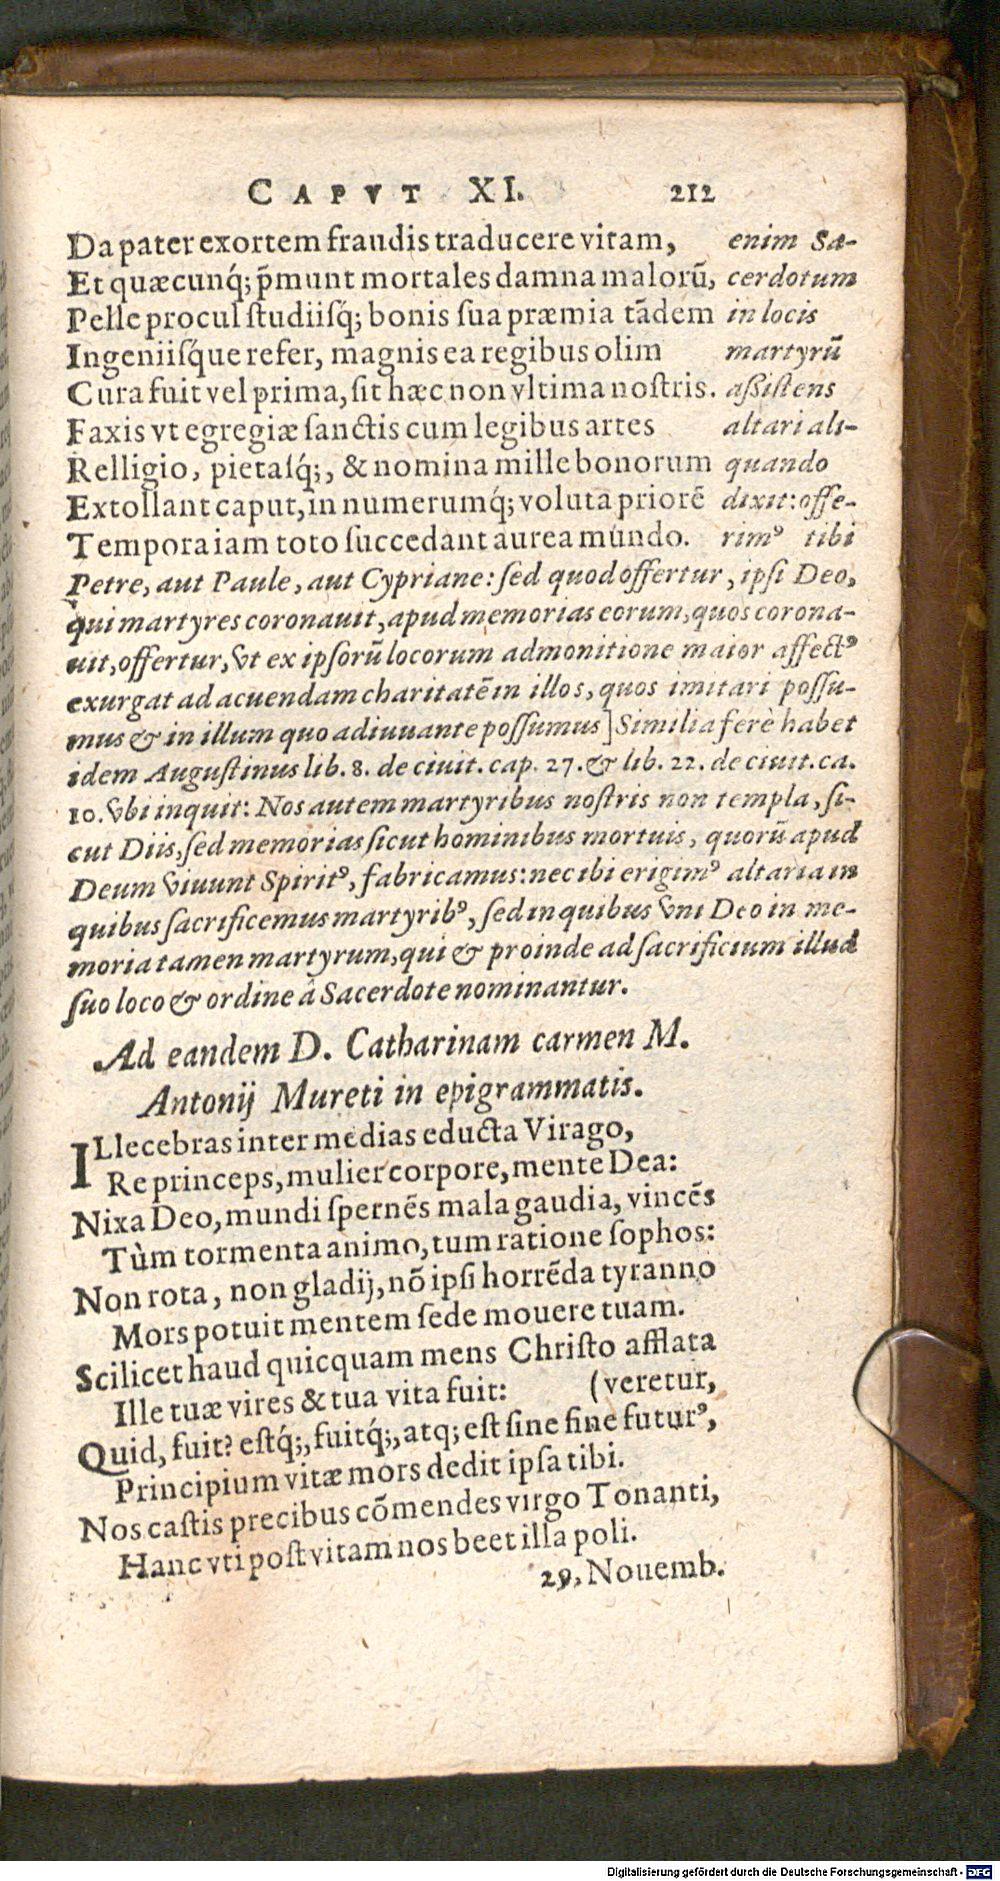 CAPVT XI. 212
Da pater exortem fraudis traducere vitam,
Et quæcunq́; p̄munt mortales damna malorū,
Pelle procul studiisq́; bonis sua præmia tādem
Ingeniisq́ue refer, magnis ea regibus olim
Cura fuit vel prima, sit hæc non vltima nostris.
Faxis vt egregiæ sanctis cum legibus artes
Relligio, pietasq́;, & nomina mille bonorum
Extollant caput, in numerumq́; voluta priorē
Tempora iam toto succedant aurea mundo.
enim Sa-
cerdotum
in locis
martyrū
aßistens
altari ali-
quando
dixit: offe-
rimꝰ tibi
Petre, aut Paule, aut Cypriane: sed quod offertur, ipsi Deo,
qui martyres coronauit, apud memorias eorum, quos corona-
uit, offertur, vt ex ipsorū locorum admonitione maior affectꝰ
exurgat ad acuendam charitatē in illos, quos imitari possu-
mus & in illum quo adiuuante possumus] Similia ferè habet
idem Augustinus lib. 8. de ciuit. cap. 27. & lib. 22. de ciuit. ca.
10. vbi inquit: Nos autem martyribus nostris non templa, si-
cut Diis, sed memorias sicut hominibus mortuis, quorū apud
Deum viuunt Spiritꝰ, fabricamus: nec ibi erigimꝰ altaria in
quibus sacrificemus martyribꝰ, sed in quibus vni Deo in me-
moria tamen martyrum, qui & proinde ad sacrificium illud
suo loco & ordine â Sacerdote nominantur.
Ad eandem D. Catharinam carmen M.
Antonij Mureti in epigrammatis.
ILlecebras inter medias educta Virago,
Re princeps, mulier corpore, mente Dea:
Nixa Deo, mundi spernēs mala gaudia, vincēs
Tùm tormenta animo, tum ratione sophos:
Non rota, non gladij, nō ipsi horrēda tyranno
Mors potuit mentem sede mouere tuam.
Scilicet haud quicquam mens Christo afflata
Ille tuæ vires & tua vita fuit: (veretur,
Quid, fuit? estq́;, fuitq́;, atq; est sine fine futurꝰ,
Principium vitæ mors dedit ipsa tibi.
Nos castis precibus cōmendes virgo Tonanti,
Hanc vti post vitam nos beet illa poli.
29. Nouemb.
Digitalisierung gefördert durch die Deutsche Forschungsgemeinschaft - DFG